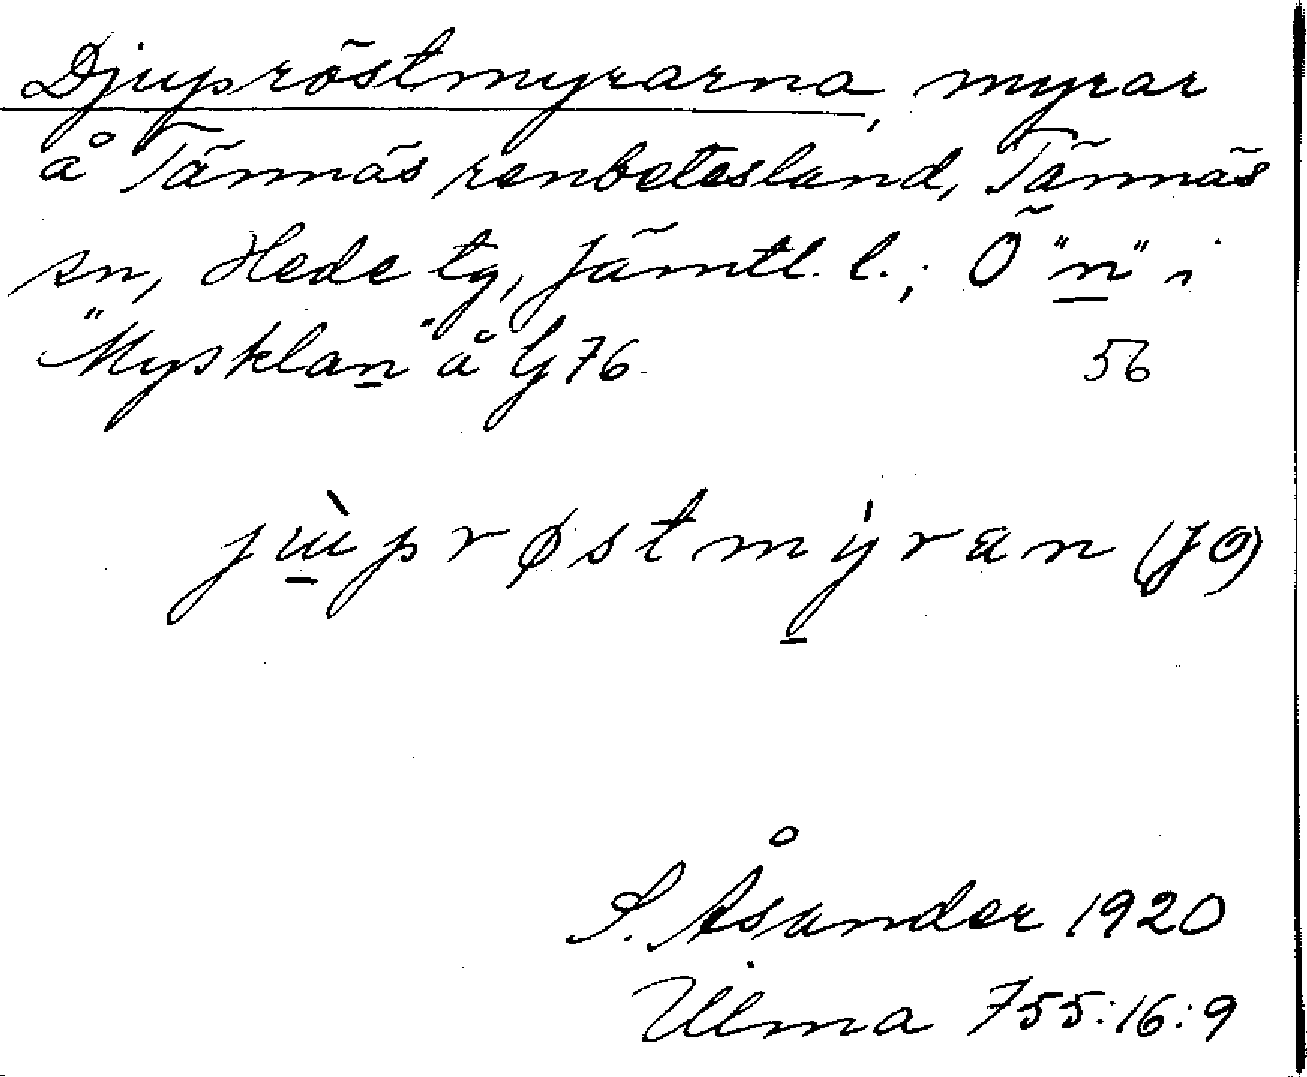 Djupröstmyrarna, myrar
å Tännäs renbetesland, Tännäs
sn, Hede tg, Jämtl. l.; Ö "n" i
"Mysklan" å G 76. 56
jùprøstmýran (JO)
S. Åsander 1920
Ulma 755:16:9